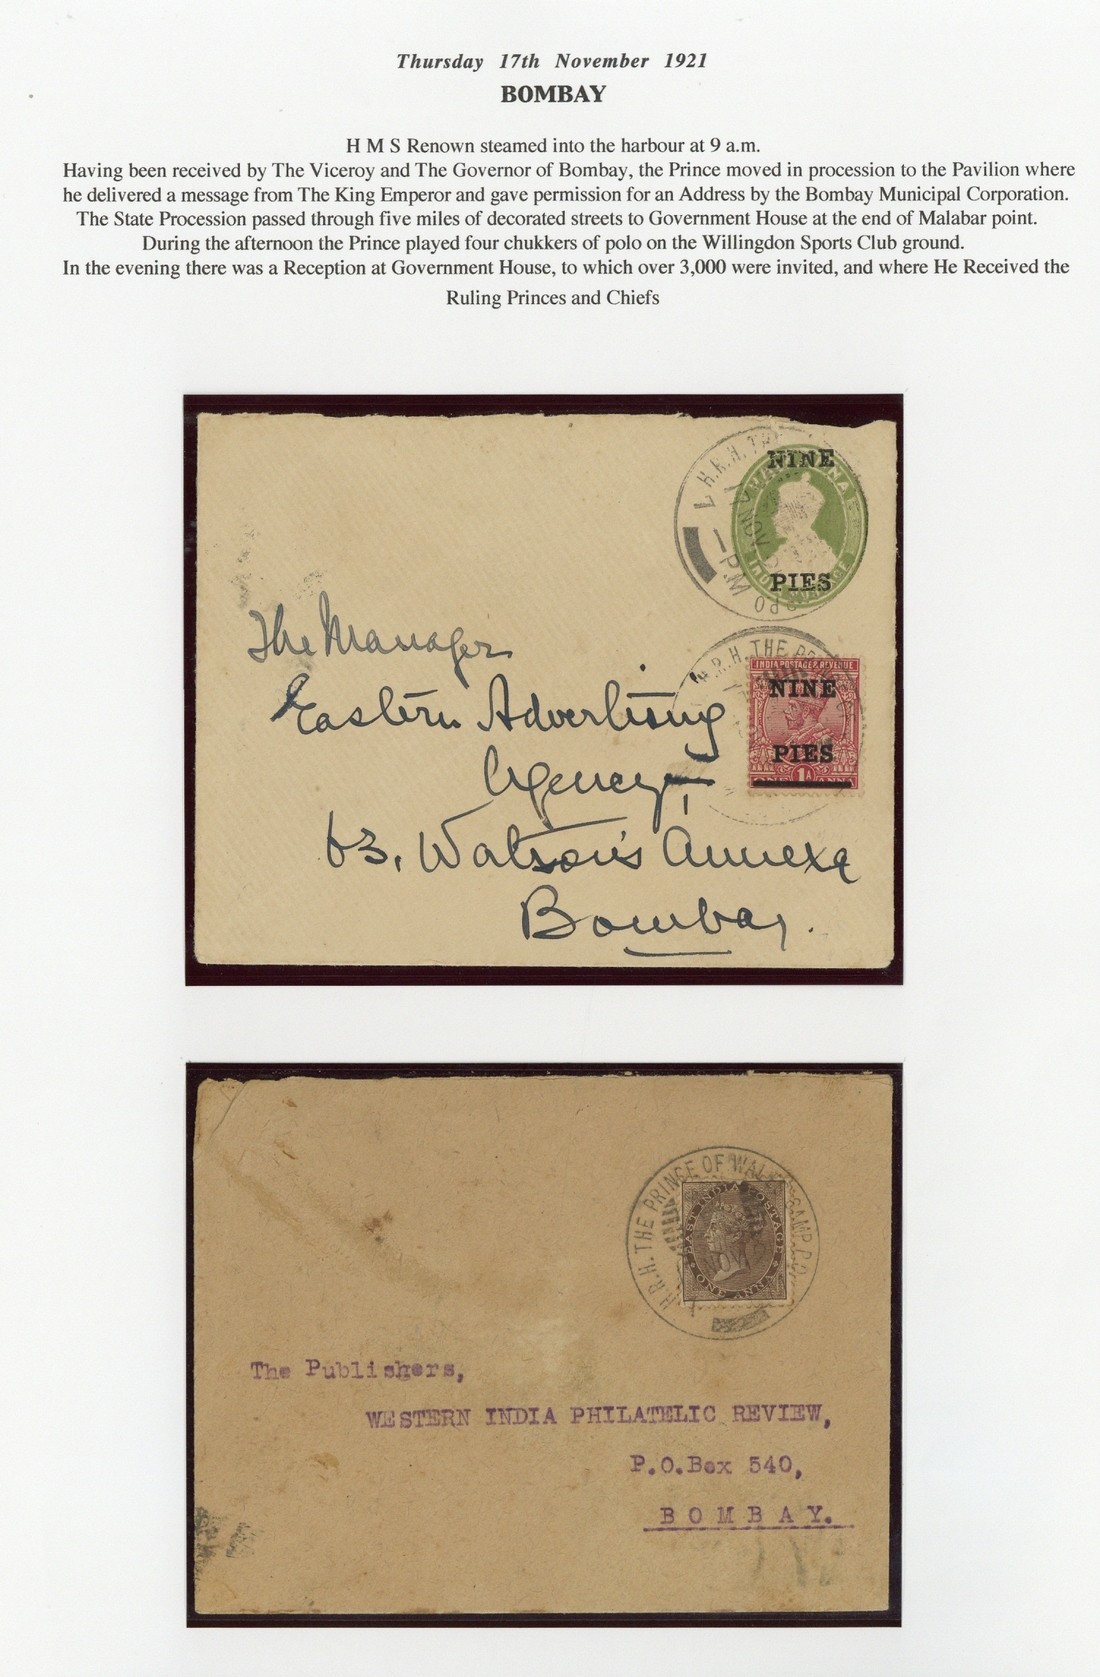 Thursday 17th November 1921
BOMBAY
H M S Renown steamed into the harbour at 9 a.m.
Having been received by The Viceroy and The Governor of Bombay, the Prince moved in procession to the Pavilion where
he delivered a message from The King Emperor and gave permission for an Address by the Bombay Municipal Corporation.
The State Procession passed through five miles of decorated streets to Government House at the end of Malabar point.
During the afternoon the Prince played four chukkers of polo on the Willingdon Sports Club ground.
In the evening there was a Reception at Government House, to which over 3,000 were invited, and where He Received the
Ruling Princes and Chiefs
H.R.H. THE
NINE
PIES
NOV
P.M
The Manager
Eastern Advertising
Agency,
63, Watson's Annexe
Bombay.
R.H. THE
INDIA POSTAGE & REVENUE
NINE
PIES
ONE 1A ANNA
H.R.H. THE PRINCE OF WALES CAMP P.O.
EAST INDIA POSTAGE
ONE ANNA
NOV
The Publishers,
WESTERN INDIA PHILATELIC REVIEW,
P.O.Box 540,
BOMBAY.